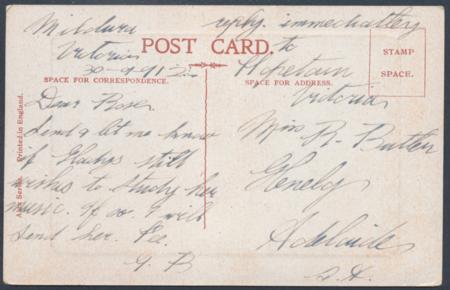 Mildura
Victoria
30-9-1912
reply immediatley
to
Hopetoun
Victoria
POST CARD.
STAMP
SPACE.
SPACE FOR CORRESPONDENCE.
SPACE FOR ADDRESS.
Dear Rose
Send & let me know
if Gladys still
wishes to study her
music. If so. I will
send her.
G. B
Miss R. Butler
Glenelg
Adelaide
S. A.
Series. Printed in England.